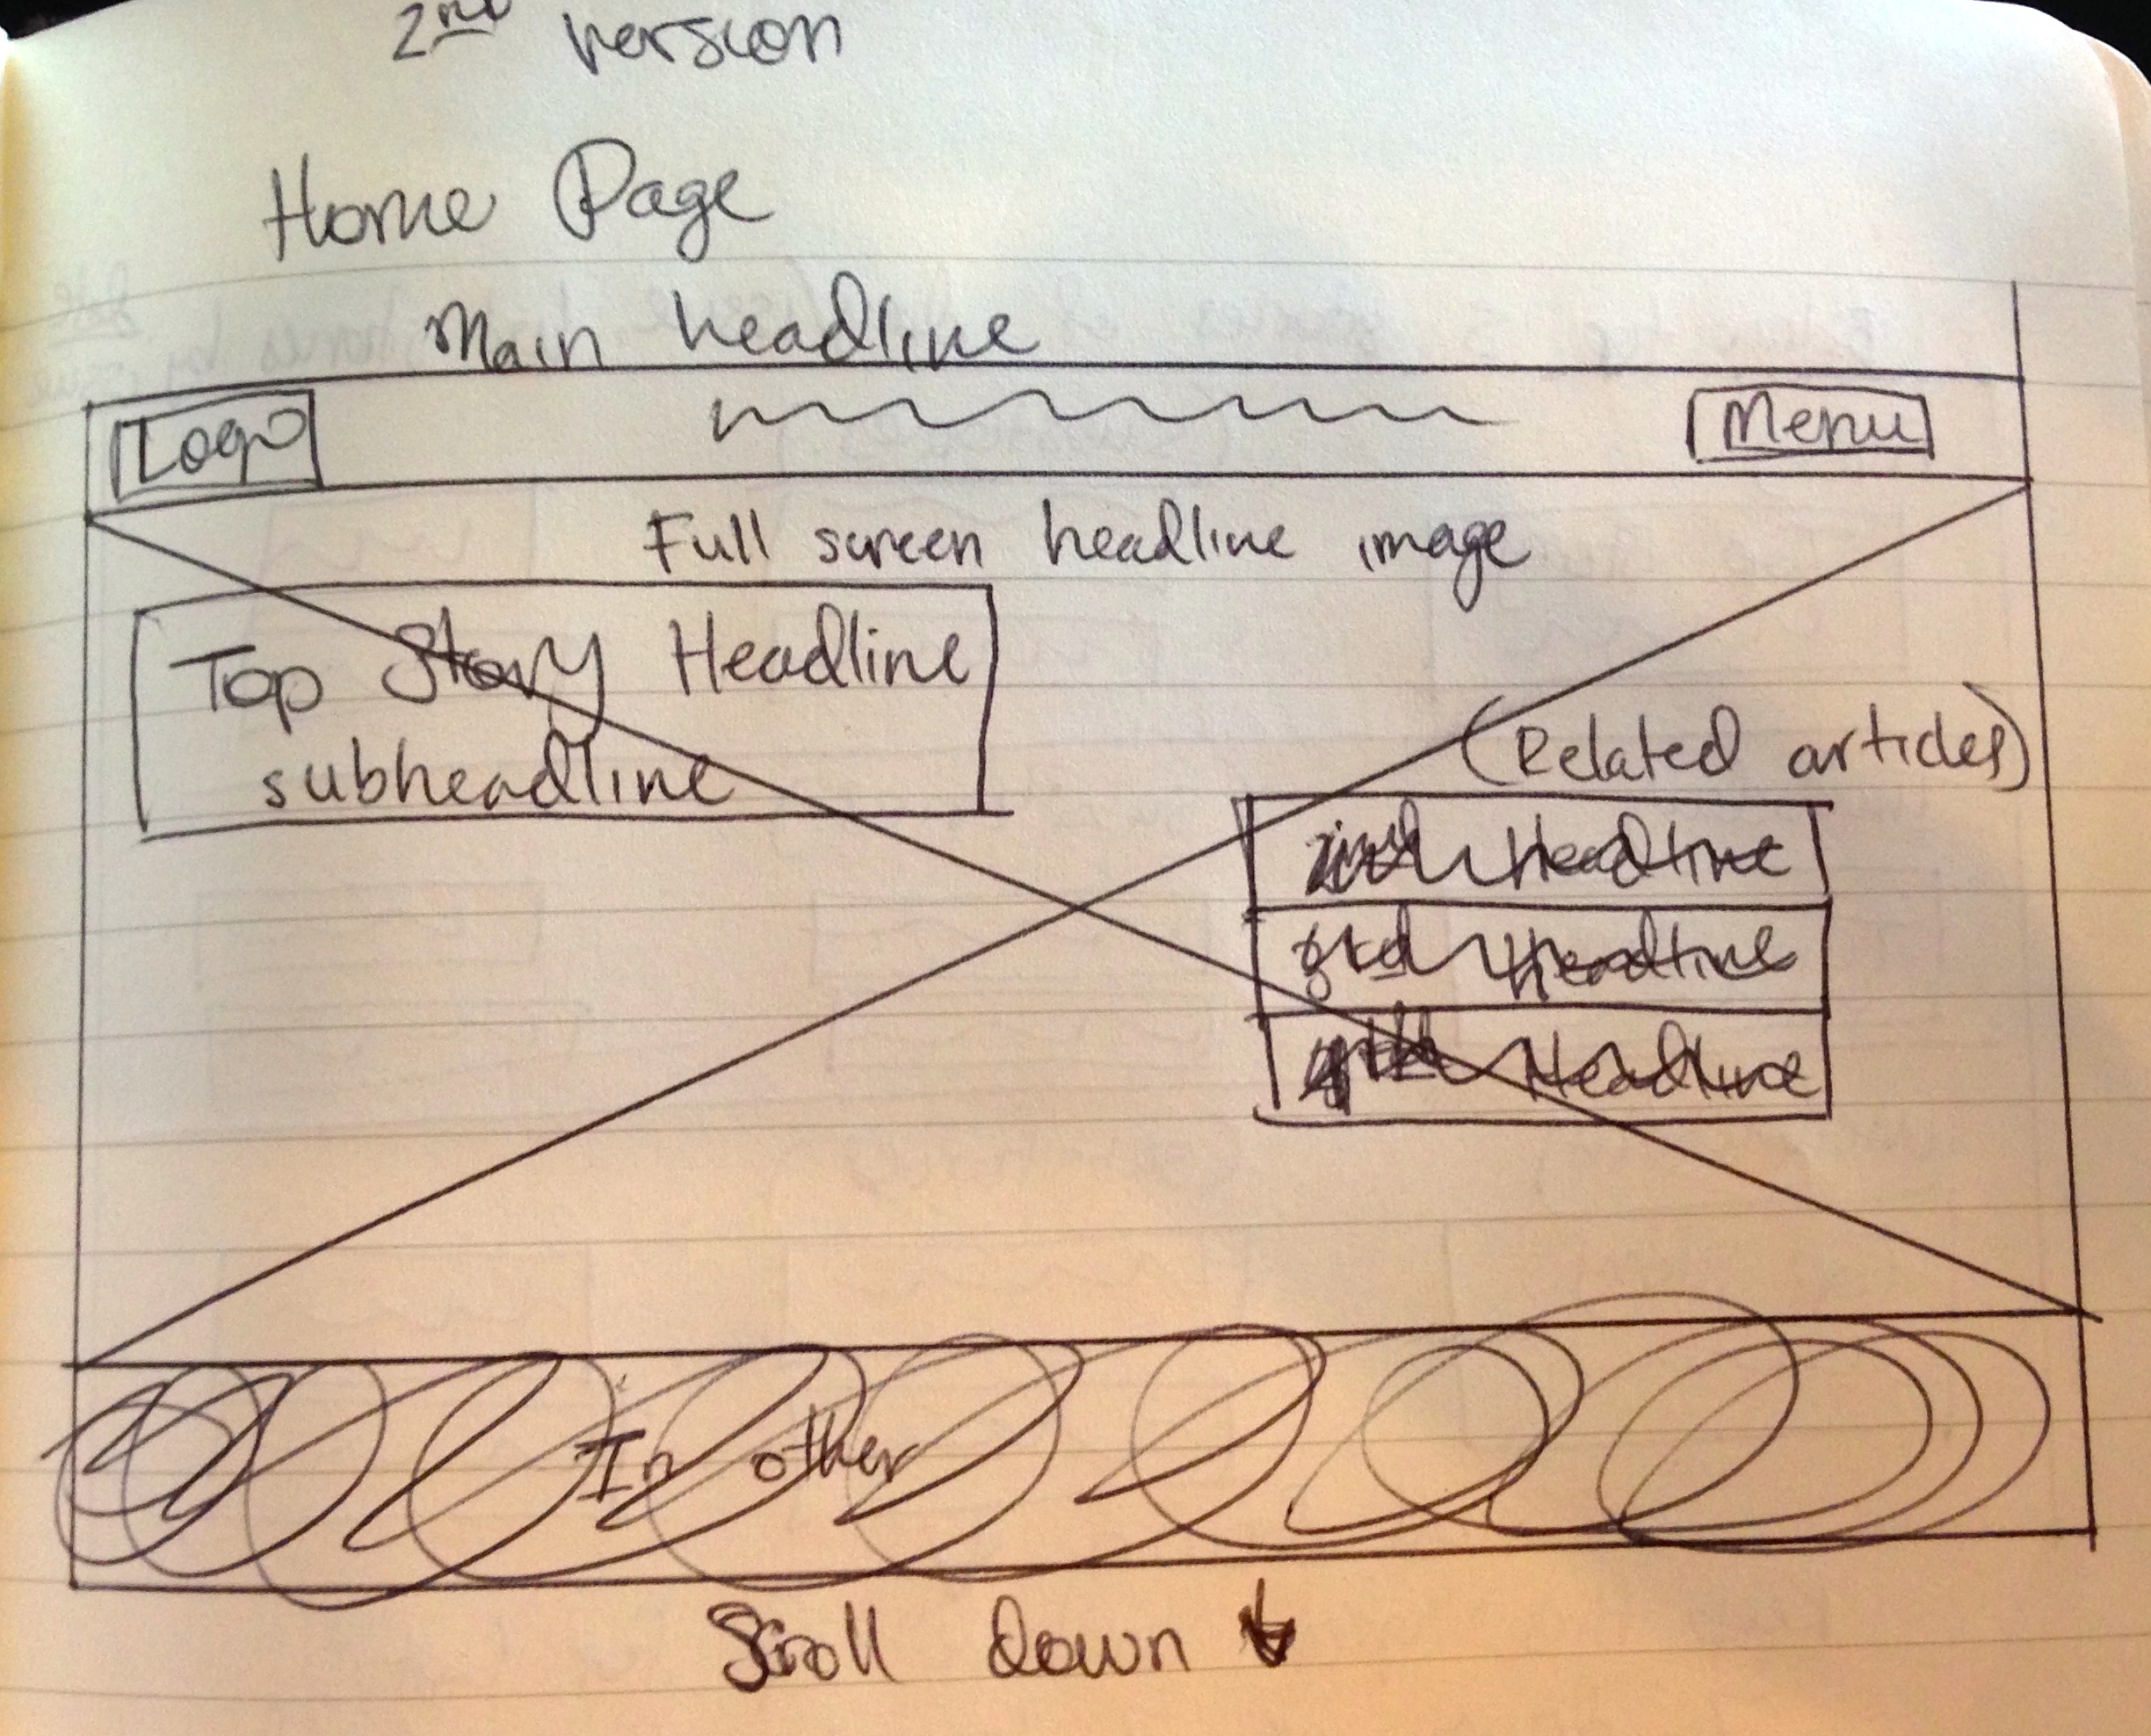 2nd version
Home Page
Main headline
Logo
Menu
Full screen headline image
Top Story Headline
subheadline
(Related articles)
Headline
3rd Headline
4th Headline
In other
Scroll down